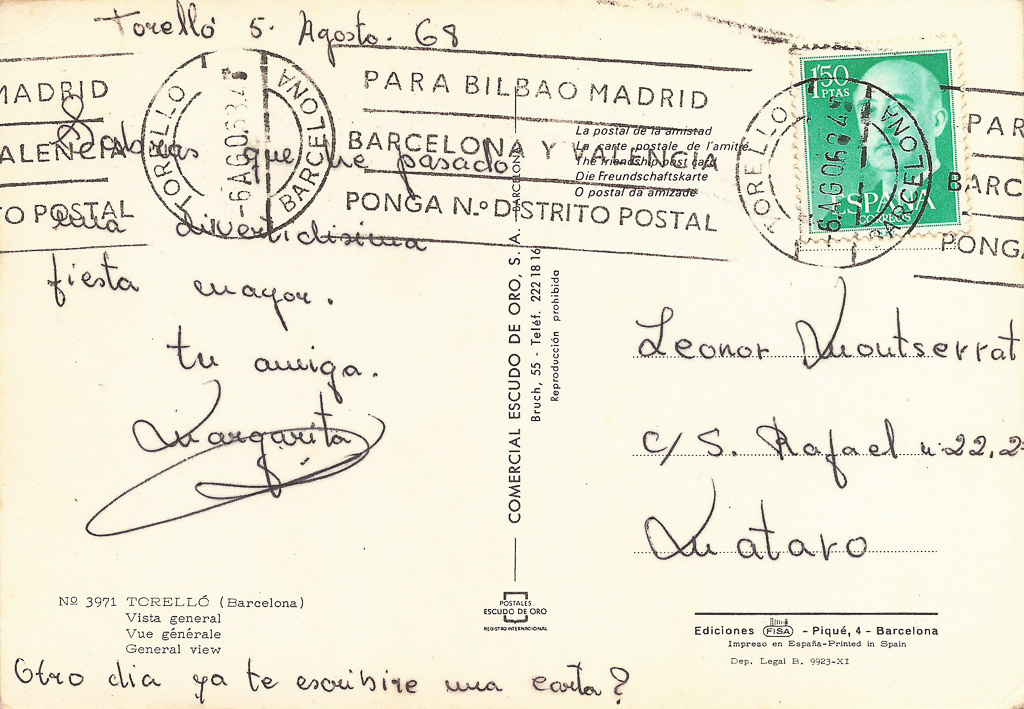 Torelló 5. Agosto. 68
MADRID
VALENCIA
TO POSTAL
TORELLO
-6.AGO.68.4
BARCELONA
PARA BILBAO MADRID
BARCELONA Y VALENCIA
PONGA N.º DISTRITO POSTAL
1'50
PTAS
ESPAÑA
CORREOS
TORELLO
-6.AGO.68.4
BARCELONA
PAR
BARC
PONGA
Sabras que he pasado
una divertidisima
fiesta mayor.
tu amiga.
Margarita
La postal de la amistad
La carte postale de l'amitié
The friendship post card
Die Freundschaftskarte
O postal da amizade
COMERCIAL ESCUDO DE ORO, S. A. - BARCELONA
Bruch, 55 - Teléf. 222 18 16
Reproducción prohibida
Leonor Montserrat
c/ S. Rafael n:22,2
Mataro
Nº 3971 TORELLÓ (Barcelona)
Vista general
Vue générale
General view
POSTALES
ESCUDO DE ORO
REGISTRO INTERNACIONAL
Ediciones FISA - Piqué, 4 - Barcelona
Impreso en España-Printed in Spain
Dep. Legal B. 9923-XI
Otro dia ya te escribire una carta?